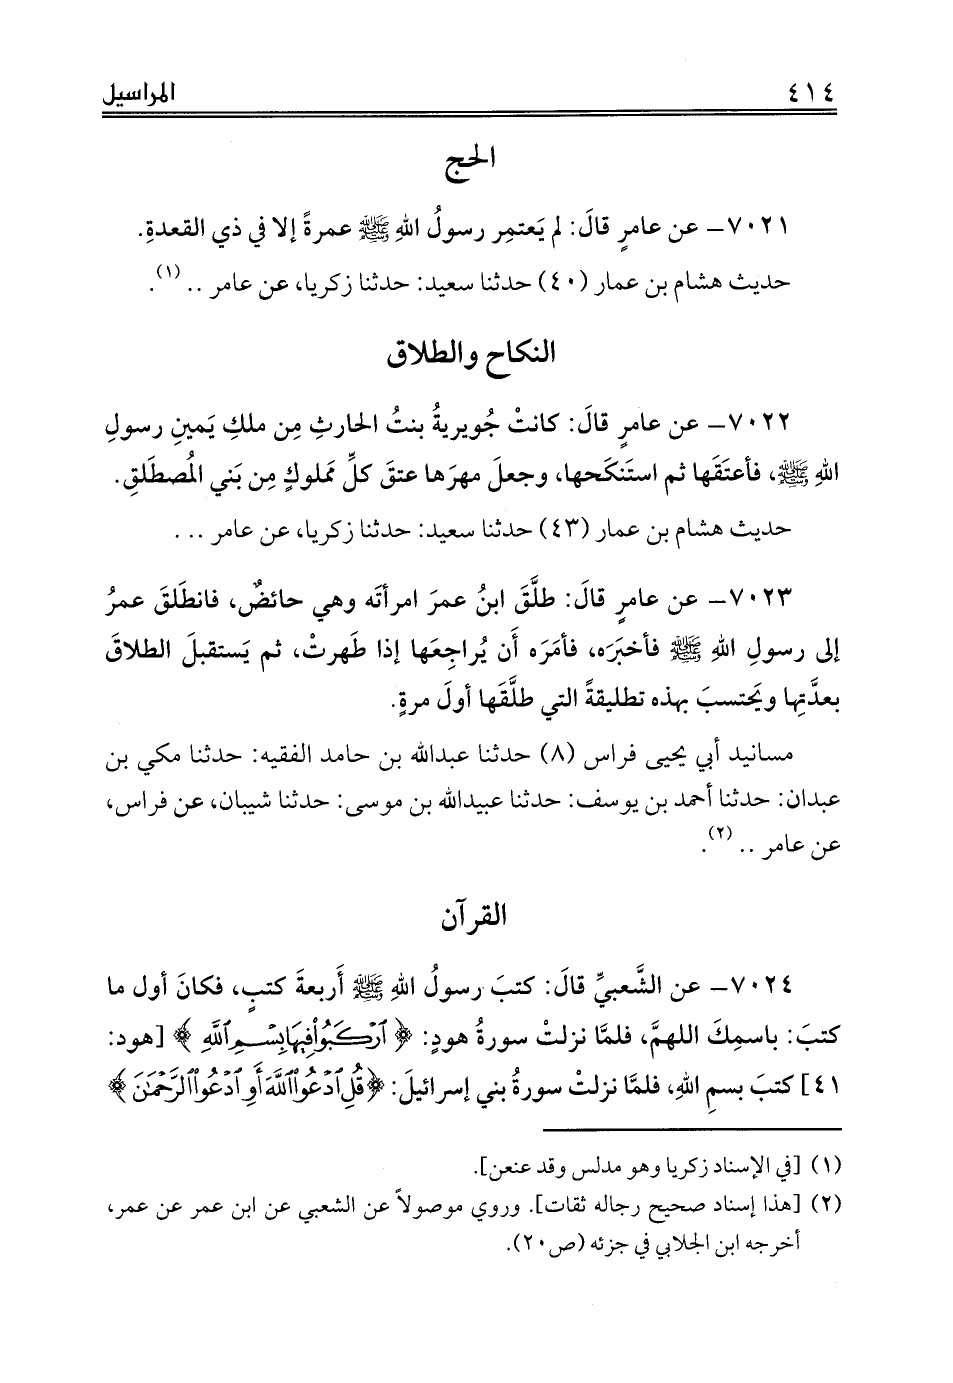 ٤١٤ المراسيل
الحج
٧٠٢١– عن عامرٍ قالَ: لم يَعتمِر رسولُ اللهِ ﷺ عمرةً إلا في ذي القعدةِ.
حديث هشام بن عمار (٤٠) حدثنا سعيد: حدثنا زكريا، عن عامر .. (١).
النكاح والطلاق
٧٠٢٢– عن عامرٍ قالَ: كانتْ جُويريةُ بنتُ الحارثِ مِن ملكِ يَمينِ رسولِ
اللهِ ﷺ، فأعتَقَها ثم استَنكَحها، وجعلَ مهرَها عتقَ كلِّ مملوكٍ مِن بَني المُصطَلقِ.
حديث هشام بن عمار (٤٣) حدثنا سعيد: حدثنا زكريا، عن عامر ...
٧٠٢٣– عن عامرٍ قالَ: طلَّقَ ابنُ عمرَ امرأتَه وهي حائضٌ، فانطَلقَ عمرُ
إلى رسولِ اللهِ ﷺ فأخبَرَه، فأمَرَه أَن يُراجِعَها إذا طَهرتْ، ثم يَستقبلَ الطلاقَ
بعدَّتِها ويَحتسبَ بهذه تطليقةً التي طلَّقَها أولَ مرةٍ.
مسانيد أبي يحيى فراس (٨) حدثنا عبدالله بن حامد الفقيه: حدثنا مكي بن
عبدان: حدثنا أحمد بن يوسف: حدثنا عبيدالله بن موسى: حدثنا شيبان، عن فراس،
عن عامر .. (٢).
القرآن
٧٠٢٤– عن الشَّعبيِّ قالَ: كتبَ رسولُ اللهِ ﷺ أَربعةَ كتبٍ، فكانَ أول ما
كتبَ: باسمِكَ اللهمَّ، فلمَّا نزلتْ سورةُ هودٍ: ﴿ٱرۡكَبُواْ فِيهَا بِسۡمِ ٱللَّهِ﴾ [هود:
٤١] كتبَ بسمِ اللهِ، فلمَّا نزلتْ سورةُ بني إسرائيلَ: ﴿قُلِ ٱدۡعُواْ ٱللَّهَ أَوِ ٱدۡعُواْ ٱلرَّحۡمَٰنَ﴾
(١) [في الإسناد زكريا وهو مدلس وقد عنعن].
(٢) [هذا إسناد صحيح رجاله ثقات]. وروي موصولاً عن الشعبي عن ابن عمر عن عمر،
أخرجه ابن الجلابي في جزئه (ص٢٠).